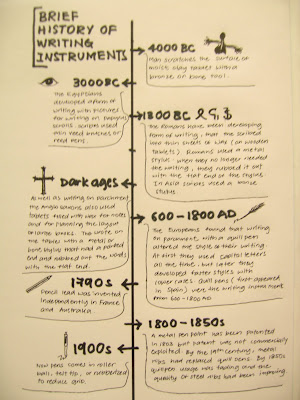 BRIEF
HISTORY OF
WRITING
INSTRUMENTS
4000 BC
Man scratches the surface of
moist clay tablet with a
bronze or bone tool.
3000 BC
The Egyptians
developed a form of
writing with pictures
for writing on papyrus
scrolls scribes used
thin reed brushes or
reed pens.
1300 BC
The Romans have been developing
form of writing, that the scribed
into thin sheets of wax (on wooden
tablets) Romans used a metal
stylus. when they no longer needed
the writing, they rubbed it out
with the flat end of the stylus.
In Asia scribes used a bronze
stylus.
Dark ages
As well as writing on parchment
the Anglo Saxons also used
tablets filled with wax for notes
and for planning the layout
of larger books. They wrote on
the tablet with a metal or
bone stylus that had a pointed
end and rubbed out the words
with the flat end.
600 - 1800 AD
The Europeans found that writing
on parchment with a quill pen
altered the style of their writing.
At first they used capital letters
all the time, but later they
developed faster styles with
lower cases. Quill pens (first appeared
in Spain) were the writing instrument
from 600-1800 AD.
1790s
Pencil lead was invented
independently in France
and Australia.
1800-1850s
A metal pen point has been patented
in 1803 but patent was not commercially
exploited. By the 19th century, metal
nibs had replaced quill pens. By 1850s
quill pen usage was fading and the
quality of steel nibs had been improving.
1900s
Now pens come in roller
ball, felt tip, or rubberized
to reduce grip.